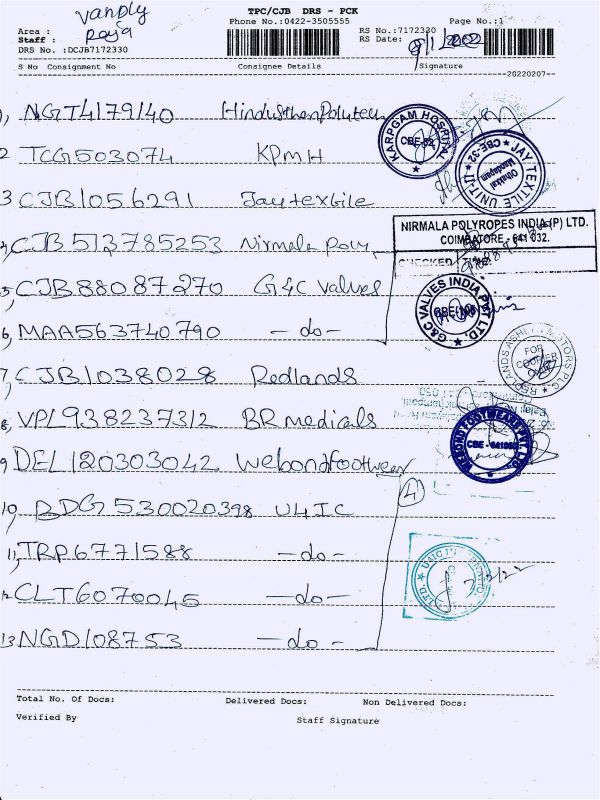 TPC/CJB DRS - PCK
Phone No.:0422-3505555
Page No.:1
Area : Vanply
Staff : Raja
DRS No. :DCJB7172330
RS No.:7172330
RS Date:
S No Consignment No Consignee Details Signature
--20220207--
1, NGT4179140 Hindusthan
2 TCG503074 KPMH
3 CJB1056291 Jaytextile
4, CJB513785253 Nirmala Poly
5, CJB88087270 G&C Valves
6, MAA563740790 -do-
7, CJB1038028 Redlands
8, VPL938237312 BR medicals
9 DEL120303042 Webondfootwear
10, BDG530020398 U4IC
11, TRP6771588 -do-
12 CLT6070045 -do-
13 NGD108753 -do-
KARPGAM HOSPITAL
CBE-52
JAY TEXTILE UNIT-II
CBE-32
NIRMALA POLYROPES INDIA (P) LTD.
COIMBATORE - 641 032.
CHECKED
G&C VALVES INDIA PVT. LTD.
FOR
WEBOND FOOTWEAR PVT. LTD.
CBE - 641050
4
Total No. of Docs: Delivered Docs: Non Delivered Docs:
Verified By Staff Signature